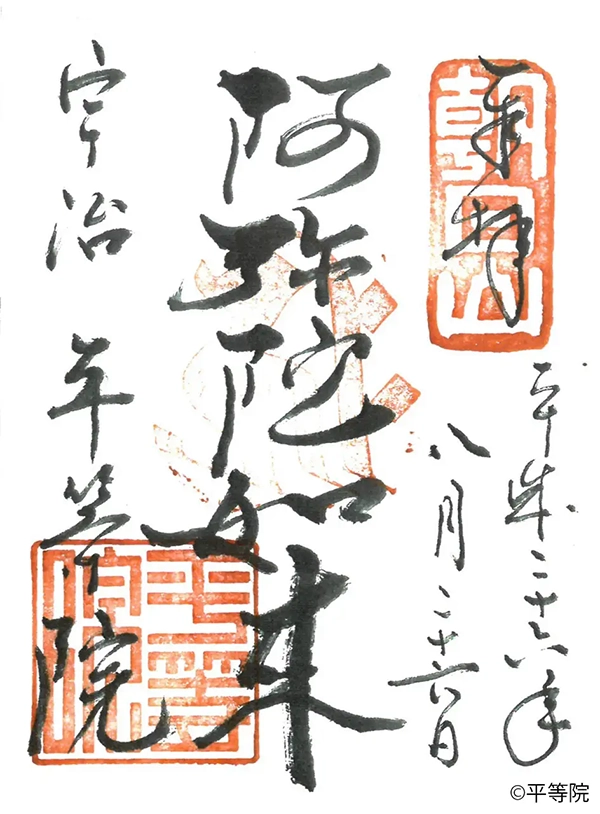 奉拝
朝日山
平成二十六年
八月二十六日
阿弥陀如来
宇治 平等院
©平等院